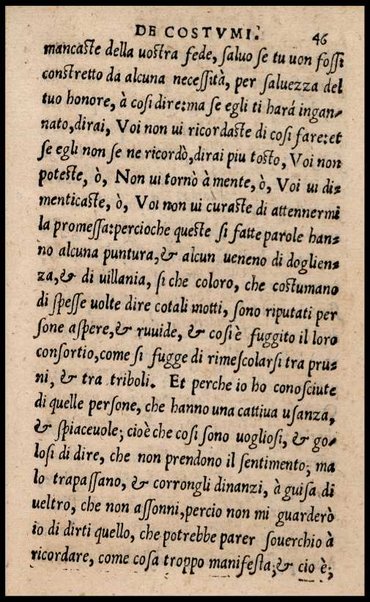 DE COSTVMI. 46
mancaste della uostra fede, saluo se tu uon fossi
constretto da alcuna necessità, per saluezza del
tuo honore, à cosi dire: ma se egli ti harà ingan-
nato, dirai, Voi non ui ricordaste di cosi fare: et
se egli non se ne ricordò, dirai piu tosto, Voi non
poteste, ò, Non ui tornò à mente, ò, Voi ui di-
menticaste, ò, Voi non ui curaste di attennermi
la promessa: percioche queste si fatte parole han-
no alcuna puntura, & alcun ueneno di doglien-
za, & di uillania, si che coloro, che costumano
di spesse uolte dire cotali motti, sono riputati per
sone aspere, & ruuide, & cosi è fuggito il loro
consortio, come si fugge di rimescolarsi tra pru-
ni, & tra triboli. Et perche io ho conosciute
di quelle persone, che hanno una cattiua usanza,
& spiaceuole; cioè che cosi sono uogliosi, & go-
losi di dire, che non prendono il sentimento; ma
lo trapassano, & corrongli dinanzi, à guisa di
ueltro, che non assonni, percio non mi guarderò
io di dirti quello, che potrebbe parer souerchio à
ricordare, come cosa troppo manifesta; & cio è;